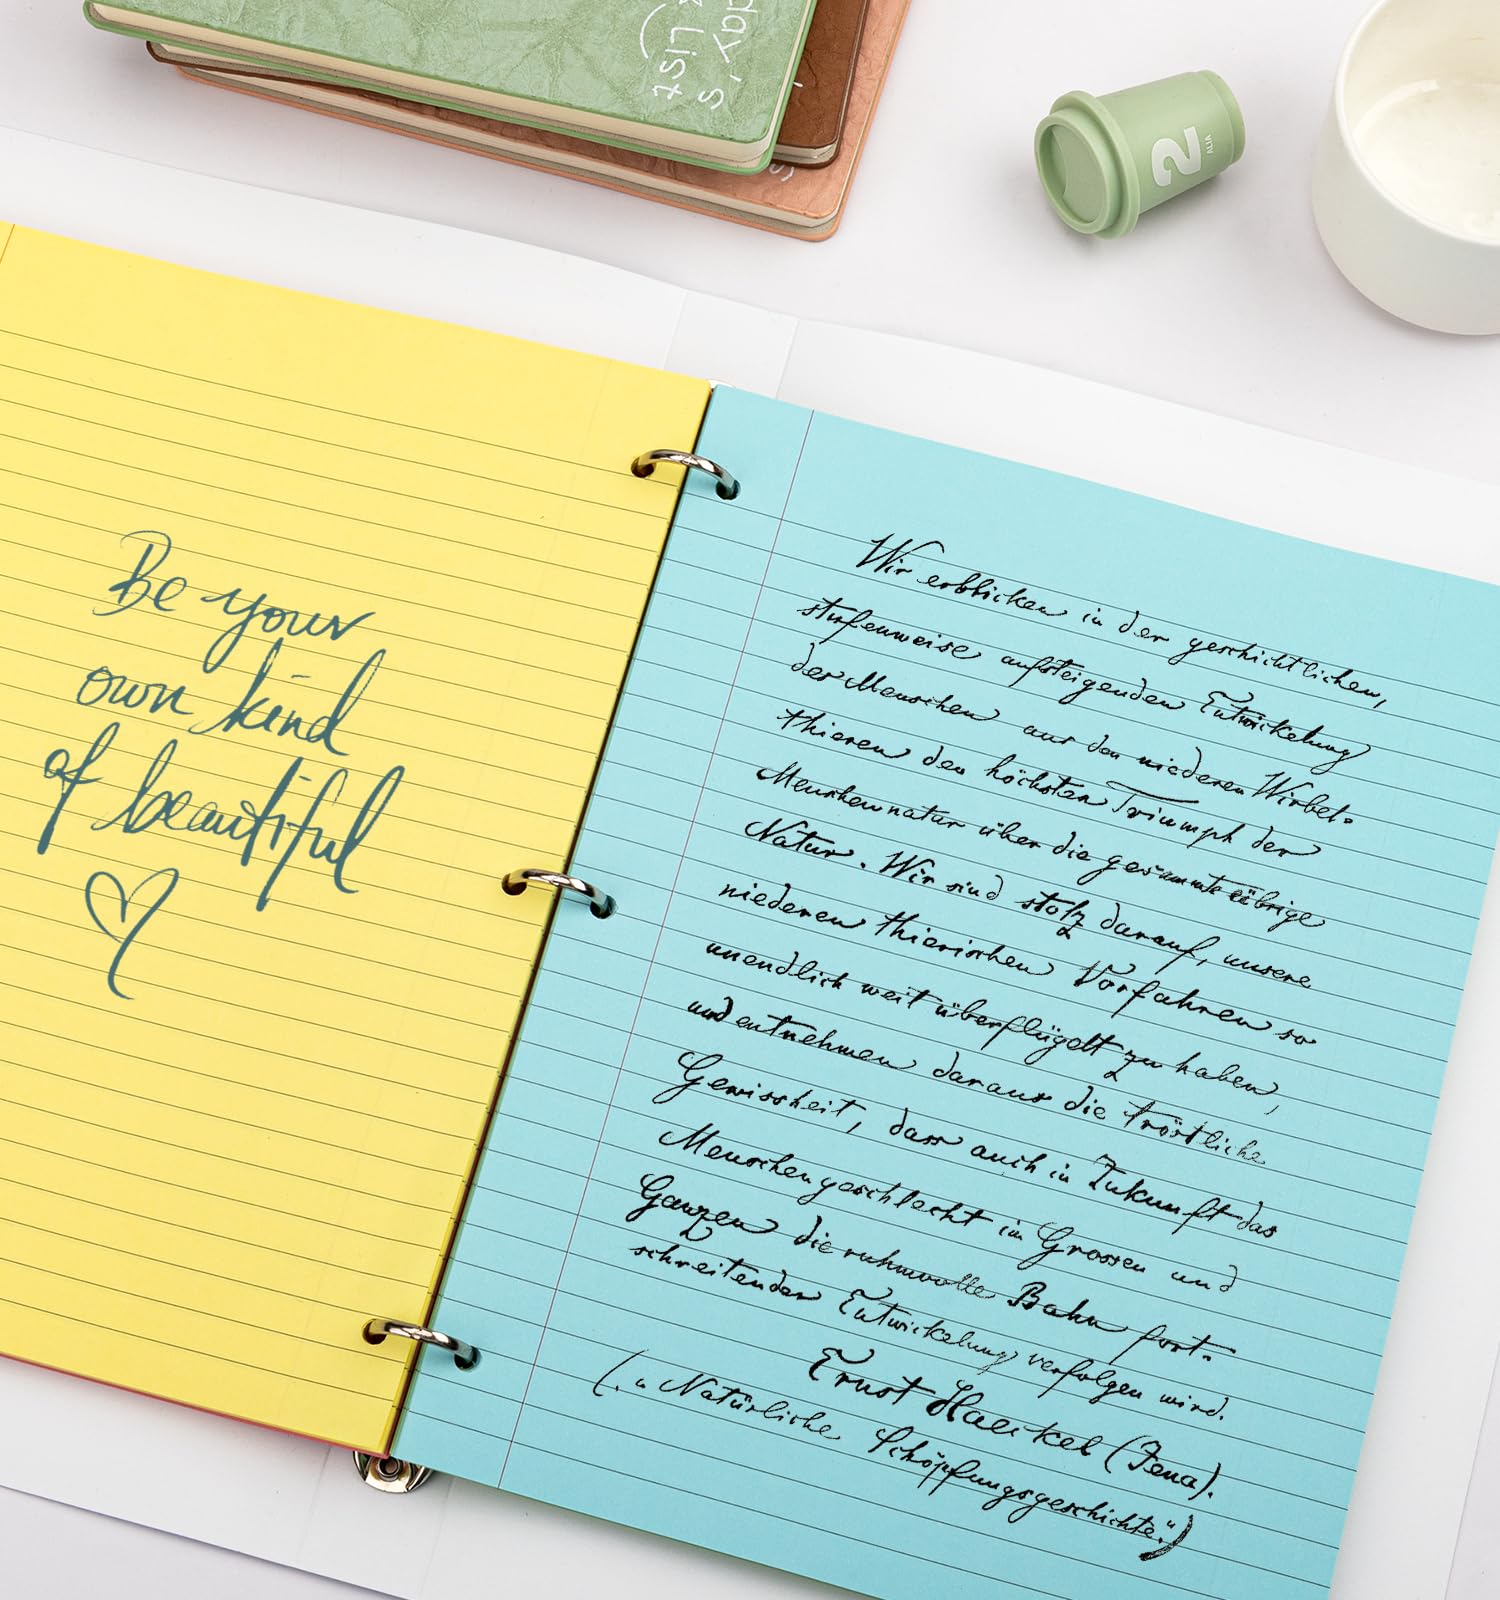 day's
List
2
ALIA
Be your
own kind
of beautiful
Wir erblicken in der geschichtlichen,
stufenweise aufsteigenden Entwickelung
des Menschen aus den niederen Wirbel-
thieren den höchsten Triumph der
Menschennatur über die gesammte übrige
Natur. Wir sind stolz darauf, unsere
niederen thierischen Vorfahren so
unendlich weit überflügelt zu haben,
und entnehmen daraus die tröstliche
Gewissheit, dass auch in Zukunft das
Menschengeschlecht im Grossen und
Ganzen die ruhmvolle Bahn fort-
schreitender Entwickelung verfolgen wird.
Ernst Haeckel (Jena).
(„Natürliche Schöpfungsgeschichte.“)